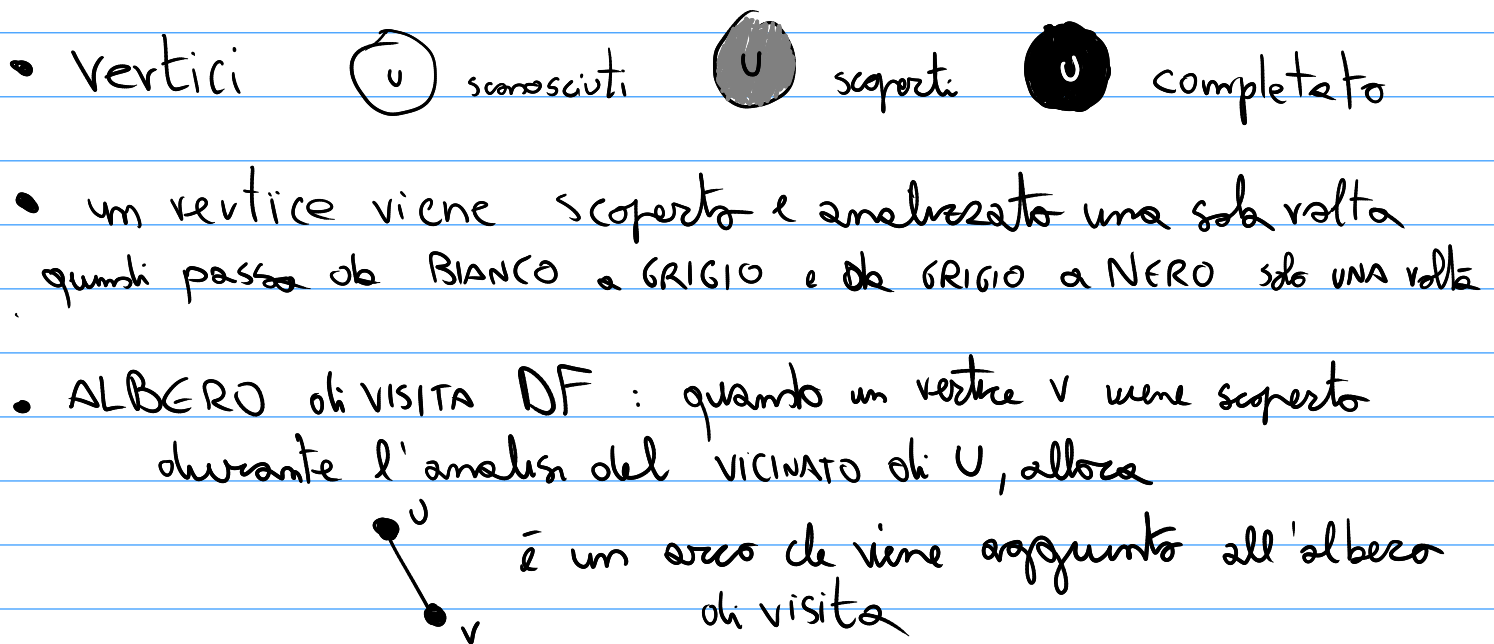 • Vertici U sconosciuti U scoperti U completato
• un vertice viene scoperto e analizzato una sola volta
quindi passo da BIANCO a GRIGIO e da GRIGIO a NERO solo UNA volta
• ALBERO di VISITA DF : quando un vertice V viene scoperto
durante l'analisi del VICINATO di U, allora
U
è un arco che viene aggiunto all'albero
di visita
V